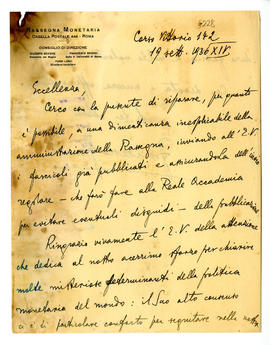 RASSEGNA MONETARIA
CASELLA POSTALE - ROMA
CONSIGLIO DI DIREZIONE
Corso Vittorio 182
19 sett. 1936 XIV
Eccellenza,
Cerco con la presente di riparare, per quanto
è possibile, a una dimenticanza inesplicabile della
amministrazione della Rassegna, inviando all'E.V.
i fascicoli già pubblicati e assicurandola dell'invio
regolare - che farò fare alla Reale Accademia
per evitare eventuali disguidi - della pubblicazione
Ringrazio vivamente l'E.V. della attenzione
che dedica al nostro acerrimo sforzo per chiarire
molte misteriose determinanti della politica
monetaria del mondo: il Suo alto consenso
ci è di particolare conforto per seguitare nella nostra